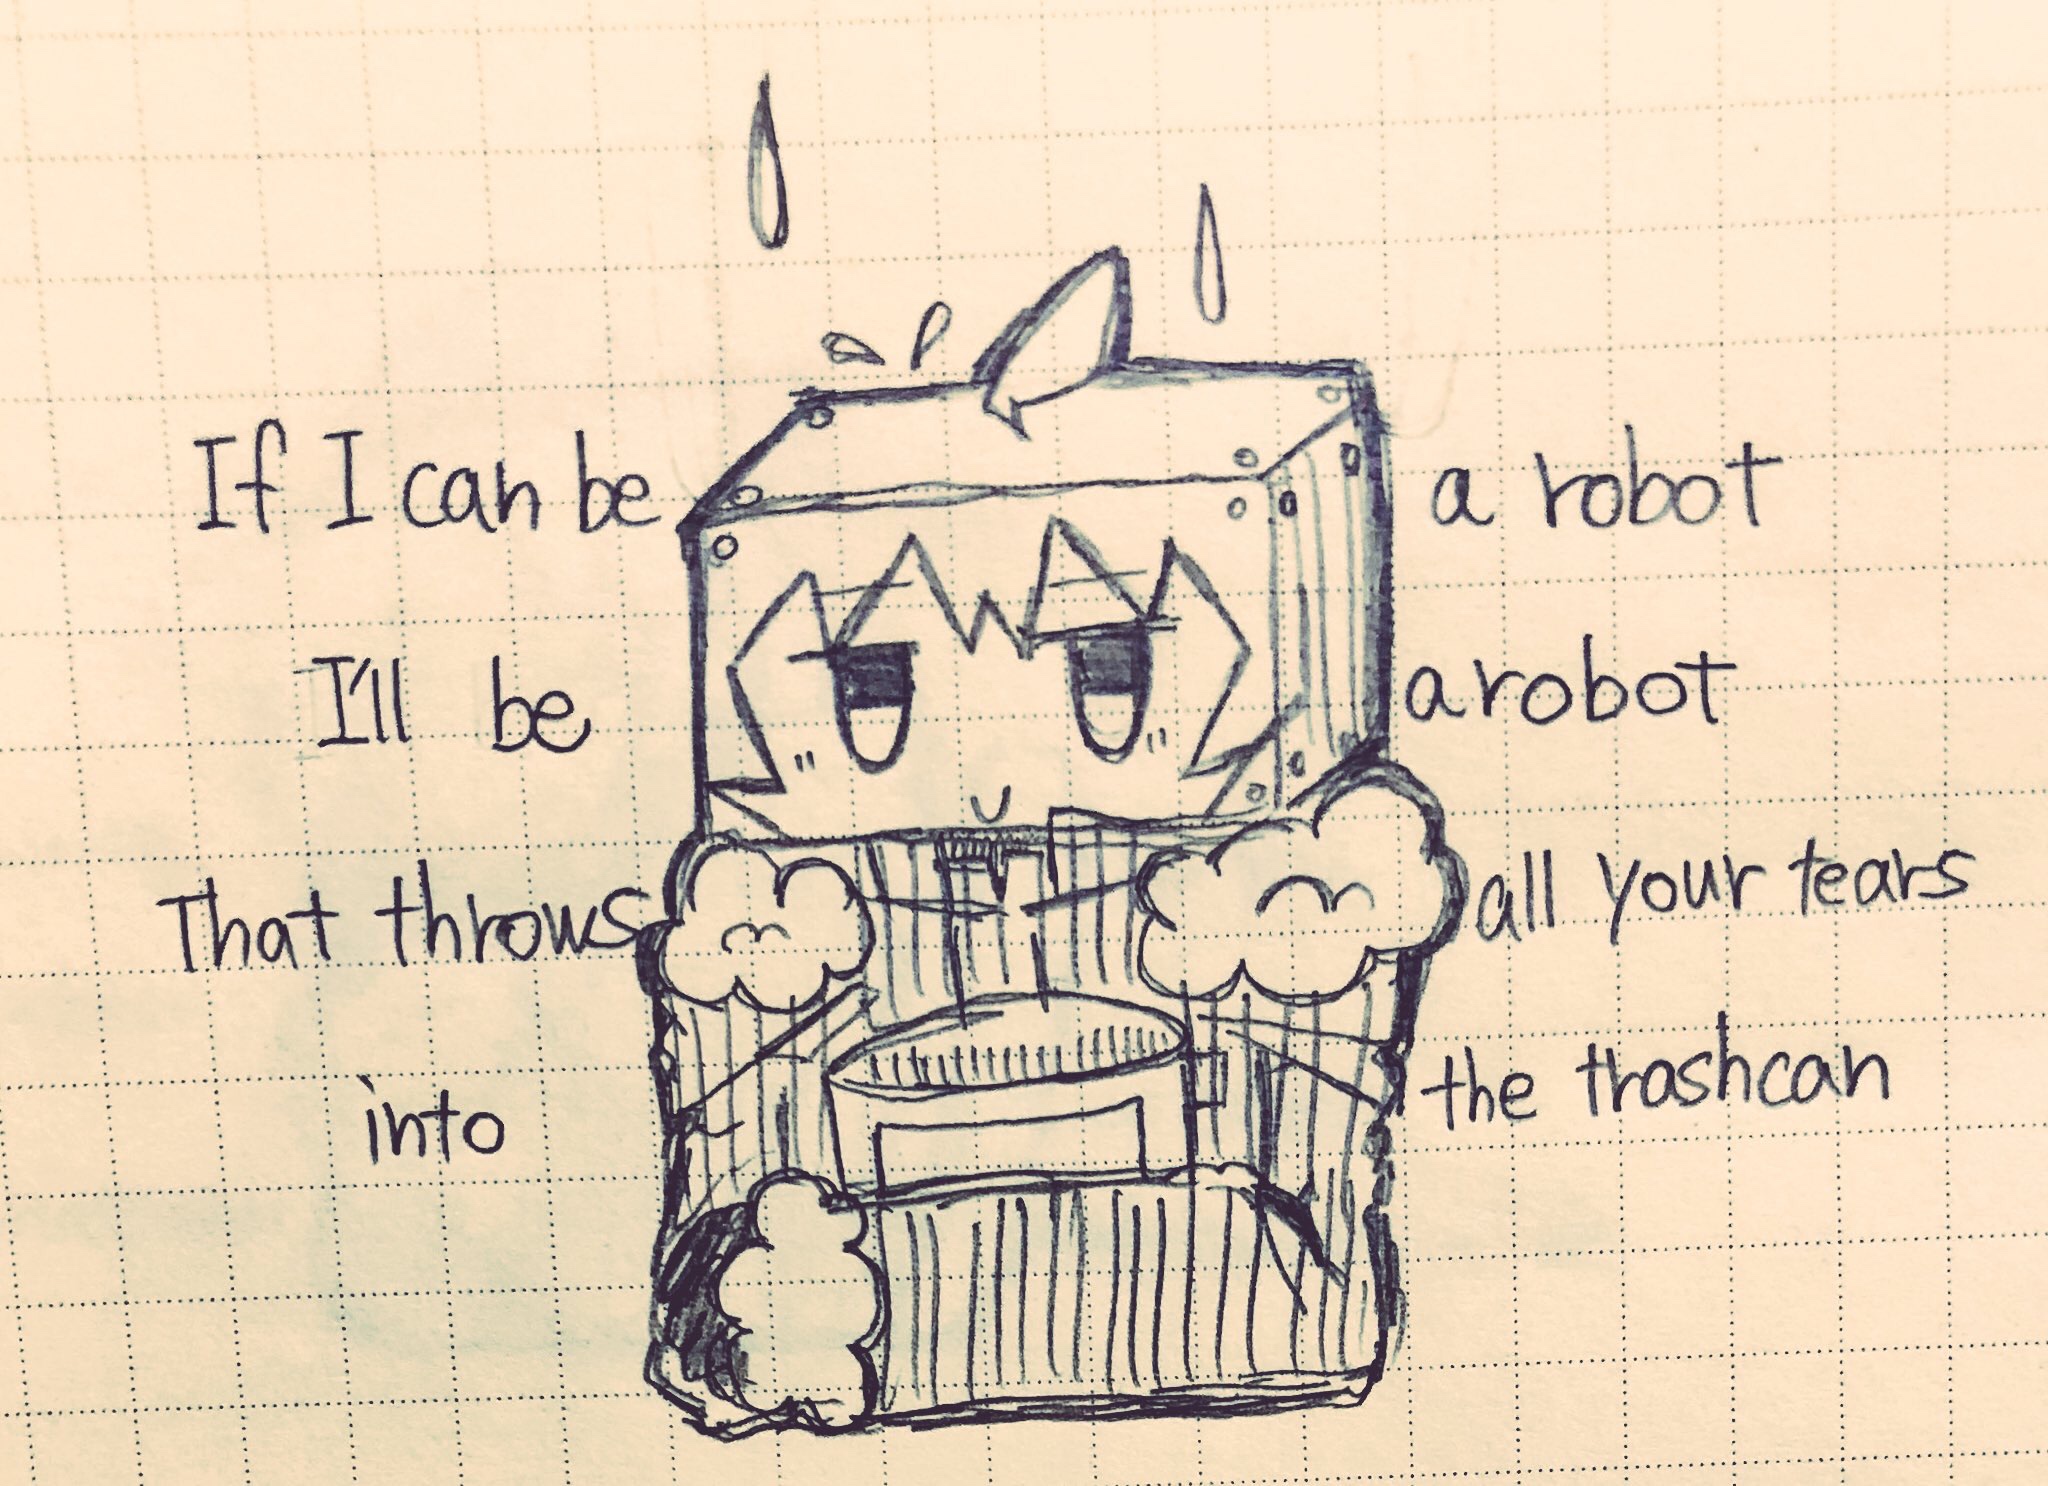 If I can be a robot
I'll be a robot
That throws all your tears
into the trashcan